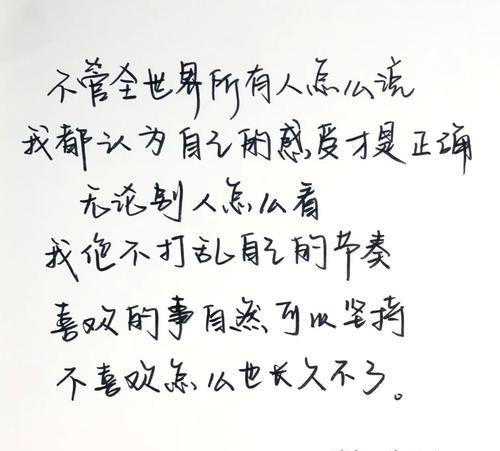 不管全世界所有人怎么说
我都认为自己的感受才是正确
无论别人怎么看
我绝不打乱自己的节奏
喜欢的事自然可以坚持
不喜欢怎么也长久不了。